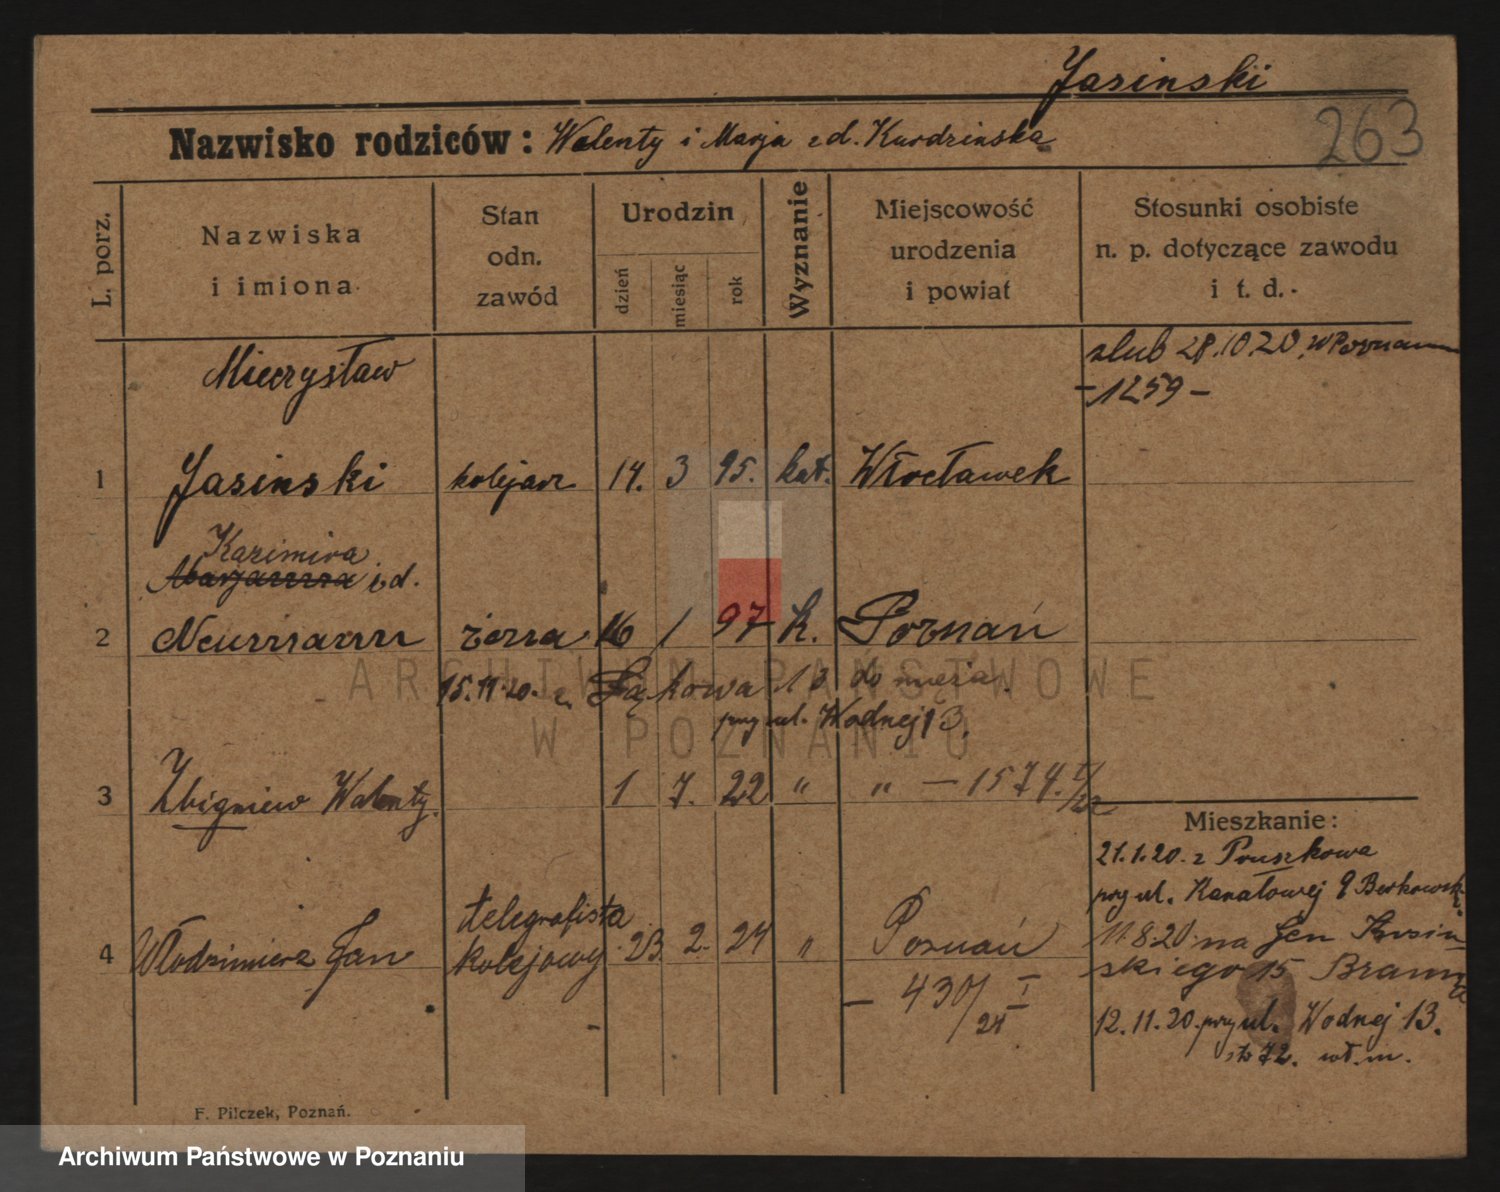 Jasinski
263
Nazwisko rodziców: Walenty i Marja z d. Kurdzinska
L. porz.
Nazwiska
i imiona
Stan
odn.
zawód
Urodzin
dzień
miesiąc
rok
Wyznanie
Miejscowość
urodzenia
i powiat
Stosunki osobiste
n. p. dotyczące zawodu
i t. d.
Mieczysław
ślub 28.10.20. w Poznaniu
-1259-
1 Jasinski kolejarz 14. 3 95. kat. Włocławek
Kazimira
Marjanna z d.
2 Neumann żona 16 1 97 k. Poznań
15.11.20. z Łąkowa 13 do męża
przy ul. Wodnej 13.
3 Zbigniew Walenty. 1 7. 22 " " — 1574. I/22
Mieszkanie:
21.1.20. z Pruszkowa
przy ul. Kanałowej 9 Berkowski
telegrafista
4 Włodzimierz Jan kolejowy 23. 2. 24 " Poznań
— 430/I 24
11.8.20. na Gen Kosin-
skiego 15 Bramą
12.11.20. przy ul. Wodnej 13.
72. wł. m.
F. Pilczek, Poznań.
ARCHIWUM PAŃSTWOWE
W POZNANIU
Archiwum Państwowe w Poznaniu